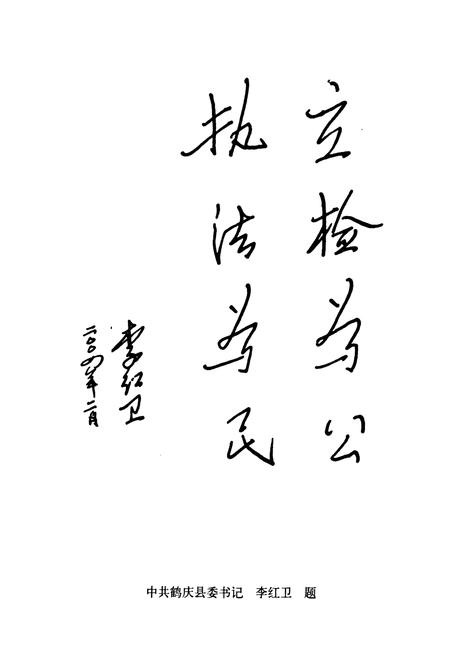 立检为公
执法为民
李红卫
二〇〇四年二月
中共鹤庆县委书记 李红卫 题